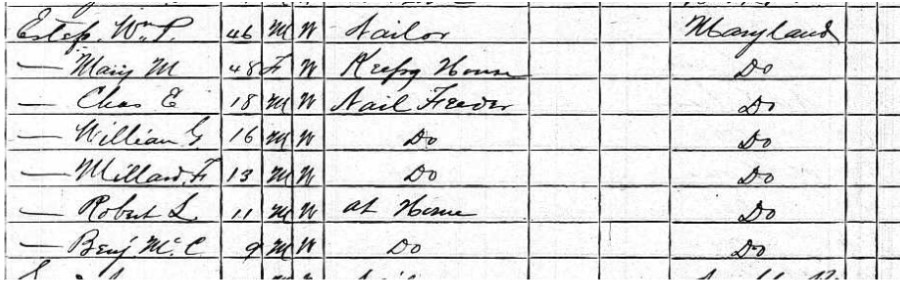 Estep, Wm P. 46 M W Nailor Maryland
— Mary M 48 F W Keepg House Do
— Chas E 18 M W Nail Feeder Do
— William G. 16 M W Do Do
— Millard F 13 M W Do Do
— Robert L 11 M W at Home Do
— Benj. Mc. C 9 M W Do Do